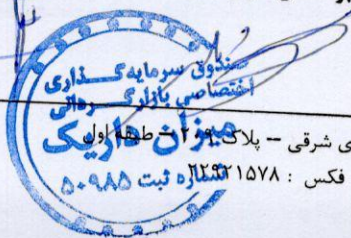 صندوق سرمایه گذاری
اختصاصی بازارگردانی
میزان داریک
شماره ثبت ۵۰۹۸۵
ی شرقی – پلاک ۲۰۹ – طبقه اول
فکس : ۲۲۹۲۱۵۷۸